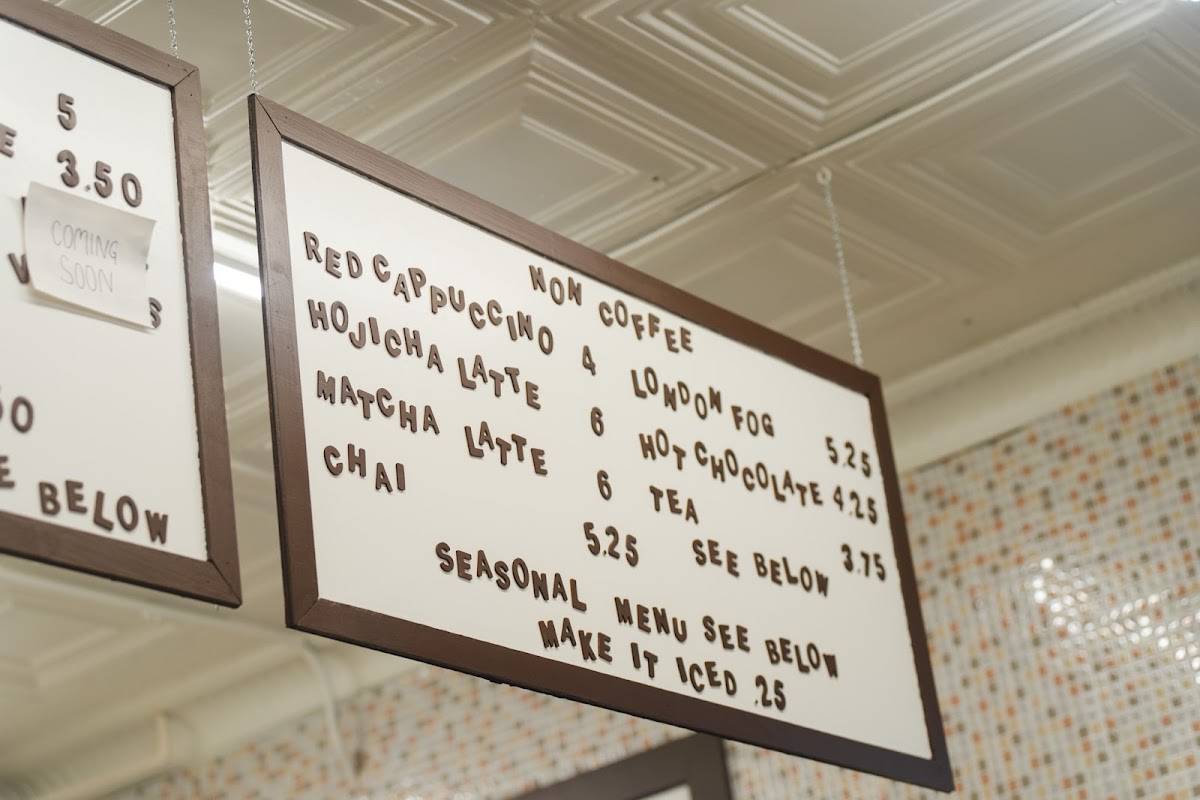 5
3.50
COMING
SOON
S
BELOW
NON COFFEE
RED CAPPUCCINO 4
HOJICHA LATTE 6
MATCHA LATTE 6
CHAI 5.25
LONDON FOG 5.25
HOT CHOCOLATE 4.25
TEA 3.75
SEE BELOW
SEASONAL MENU SEE BELOW
MAKE IT ICED .25